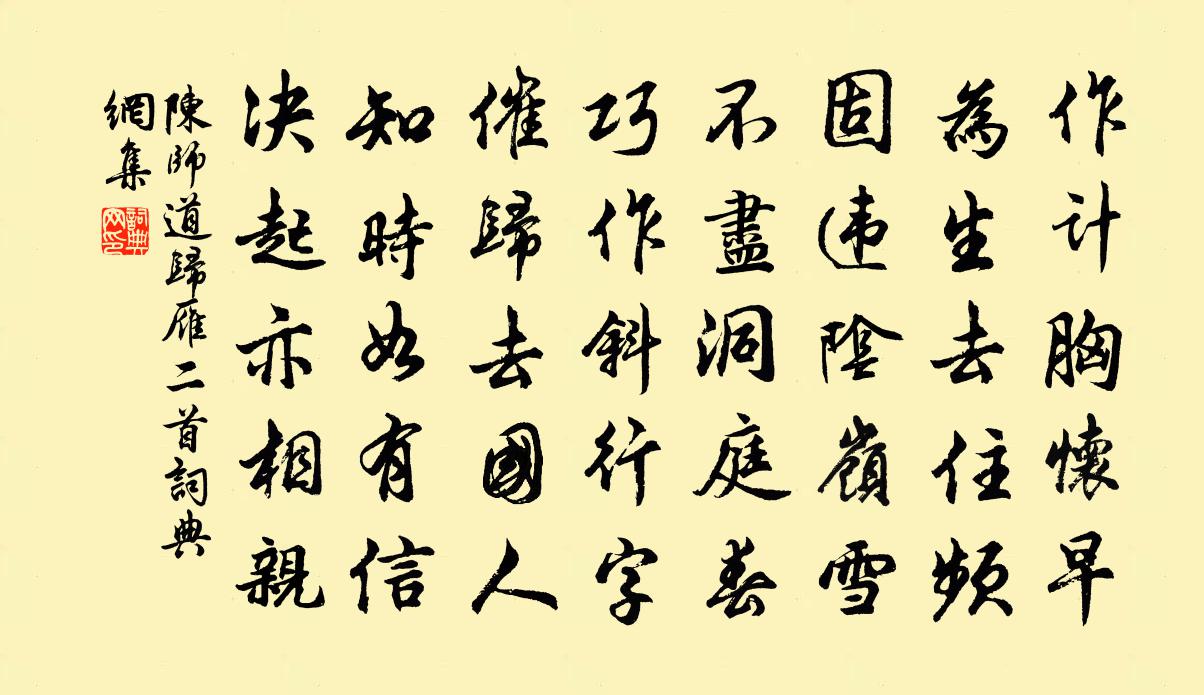 作計胸懷早
為生去住頻
固违陰嶺雪
不盡洞庭春
巧作斜行字
催歸去國人
知時如有信
决起亦相親
陳師道歸雁二首詞典
網集
詞典
网印